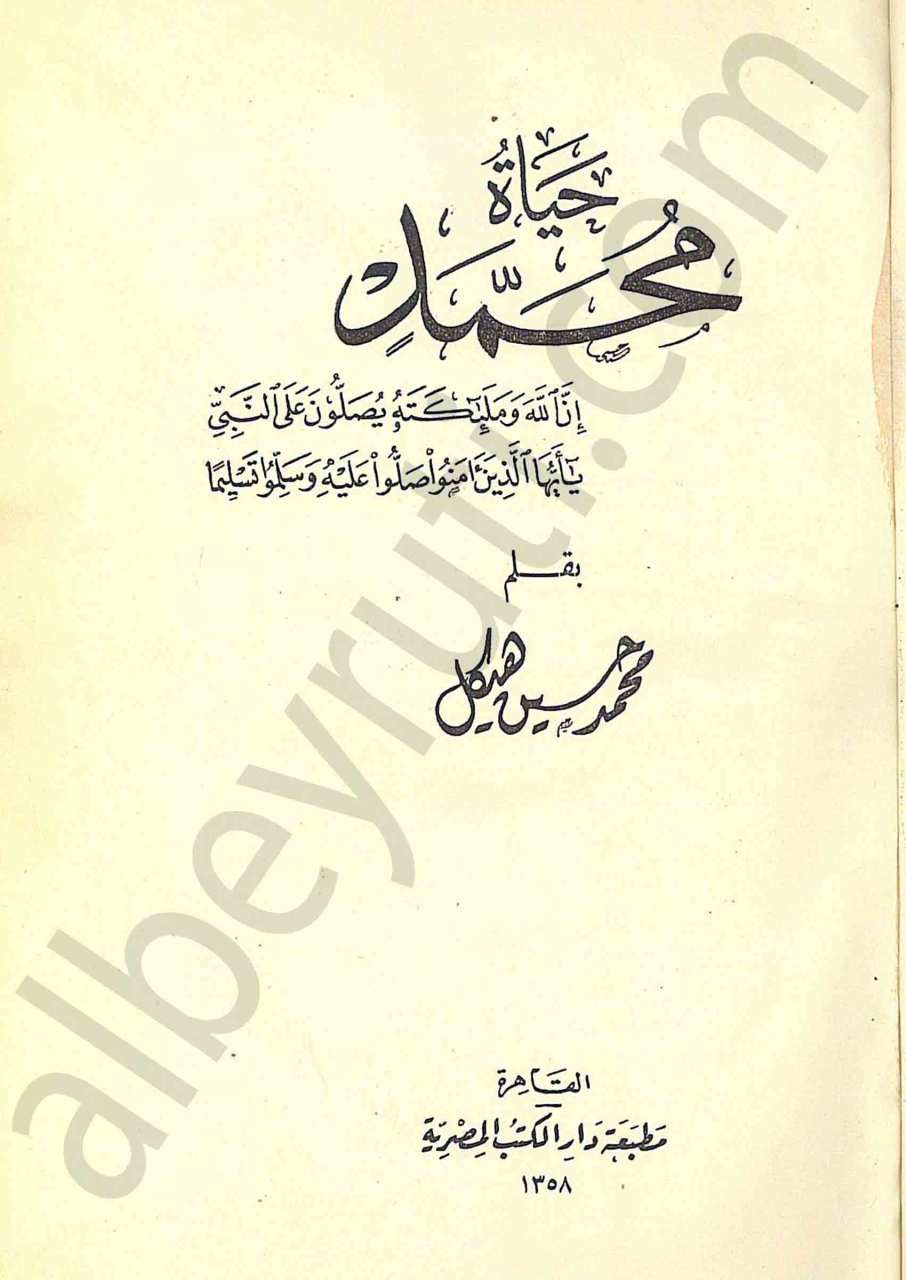 حَيَاةُ
مُحَمَّدٍ
إِنَّ ٱللَّهَ وَمَلَٰٓئِكَتَهُۥ يُصَلُّونَ عَلَى ٱلنَّبِىِّ
يَٰٓأَيُّهَا ٱلَّذِينَ ءَامَنُوا۟ صَلُّوا۟ عَلَيْهِ وَسَلِّمُوا۟ تَسْلِيمًا
بقلم
محمد حسين هيكل
القاهرة
مَطبَعَة دَارِ الكتبُ المِصْرِيَّة
١٣٥٨
albeyruti.com